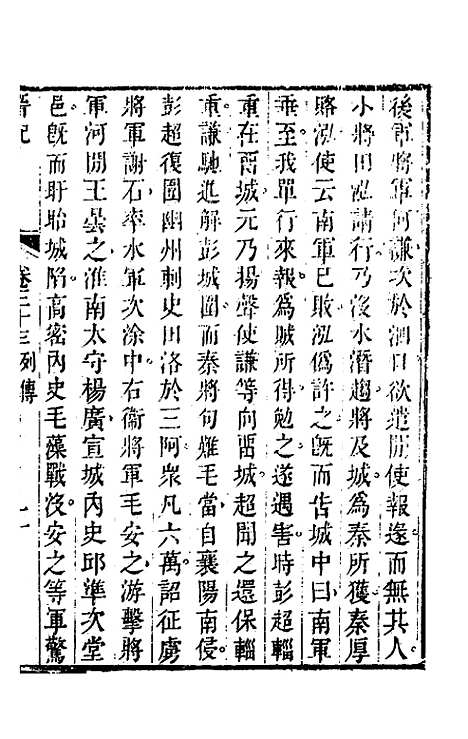 後軍將軍何謙次於泗口欲遣間使報逵而無其人
小將田泓請行乃沒水潛趨將及城爲秦所獲秦厚
賂泓使云南軍已敗泓僞許之旣而告城中曰南軍
垂至我單行來報爲賊所得勉之遂遇害時彭超輜
重在畱城元乃揚聲使謙等向畱城超聞之還保輜
重謙馳進解彭城圍而秦將句難毛當自襄陽南侵
彭超復圍幽州刺史田洛於三阿衆凡六萬詔征虜
將軍謝石率水軍次涂中右衞將軍毛安之游擊將
軍河閒王曇之淮南太守楊廣宣城內史邱準次堂
邑旣而盱眙城陷高密內史毛藻戰沒安之等軍驚
晉記
卷三十三列傳